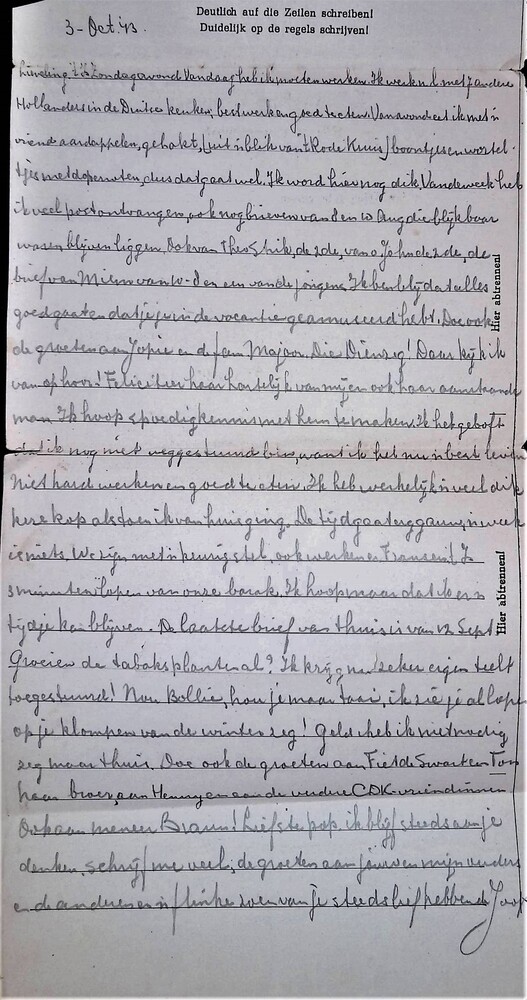 Deutlich auf die Zeilen schreiben!
Duidelijk op de regels schrijven!
3-Oct. '43.
Lieveling, 't Is Zondagavond. Vandaag heb ik moeten werken. Ik werk n.l. met 7 andere
Hollanders in de Duitse keuken, best werk en goed te eten. Vanavond eet ik met 'n
vriend aardappelen, gehakt, (uit 'n blik van 't Rode Kruis) boontjes en wortel-
tjes met doperwten, dus dat gaat wel. Ik word hier nog dik. Van de week heb
ik veel post ontvangen, ook nog brieven van 8 en 10 Aug die blijkbaar
waren blijven liggen. Ook van Theo de 2de, van John de 2de, de
brief van Mien van 10-8 en een van de jongens. Ik ben blij dat alles
goed gaat en dat je je in de vacantie geamuseerd hebt. Doe ook
de groeten aan Jopie en de fam Majoor. Die Dien zeg! Daar kijk ik
van op hoor! Feliciteer haar hartelijk van mij en ook haar aanstaande
man. Ik hoop spoedig kennis met hem te maken. Ik heb geboft
dat ik nog niet weggestuurd ben, want ik heb nu 'n best leven
Niet hard werken en goed te eten. Ik heb werkelijk 'n veel dik
kere kop als toen ik van huis ging. De tijd gaat erg gauw, 'n week
is niets. We zijn met 'n prettig stel, ook werken er Fransen
3 minuten lopen van onze barak. Ik hoop maar dat ik er 'n
tijdje kan blijven. De laatste brief van thuis is van 12 Sept
Groeien de tabaksplanten al? Ik krijg nu zeker eigen teelt
toegestuurd! Nou Bollie, hou je maar taai, ik zie je al lopen
op je klompen van de winter zeg! Geld heb ik niet nodig
zeg maar thuis. Doe ook de groeten aan Fiet de Swart en
haar broer, aan Henny en aan de verdere CDK-vriendinnen
Ook aan meneer Braun! Liefste pop ik blijf steeds aan je
denken, schrijf me veel, de groeten aan jouw en mijn ouders
en de anderen en 'n flinke zoen van je steeds liefhebbende Joop
Hier abtrennen!
Hier abtrennen!